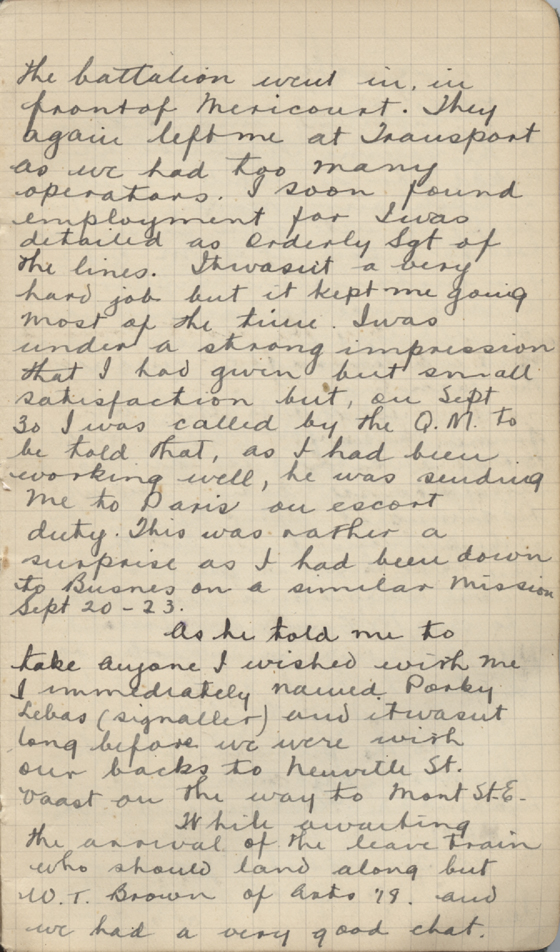 the battalion went in, in
front of Mericourt. They
again left me at Transport
as we had too many
operators. I soon found
employment for I was
detailed as Orderly Sgt of
the lines. It wasn't a very
hard job but it kept me going
most of the time. I was
under a strong impression
that I had given but small
satisfaction but, on Sept
30 I was called by the Q.M. to
be told that, as I had been
working well, he was sending
me to Paris on escort
duty. This was rather a
surprise as I had been down
to Busnes on a similar mission
Sept 20-23.
As he told me to
take anyone I wished with me
I immediately named Porky
Lebas (signaller) and it wasn't
long before we were with
our backs to Neuville St.
Vaast on the way to Mont St. E-
While awaiting
the arrival of the leave train
who should land along but
W. T. Brown of Arts '19. and
we had a very good chat.